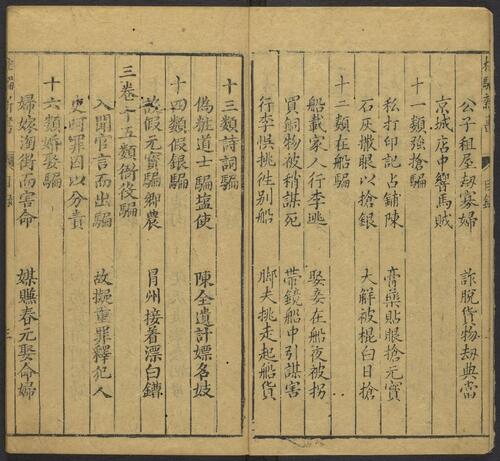 公子租屋劫寡婦　詐脫貨物劫典當
京城店中響馬賊
十一類強搶騙
私打印記占鋪陳　膏藥貼眼搶元寶
石灰撒眼以搶銀　大解被棍白日搶
十二類在船騙
船載家人行李逃　娶妾在船夜被拐
買銅物被稍謀死　帶鏡船中引謀害
行李悞挑徃別船　脚夫挑走起船貨
十三類詩詞騙
偽粧道士騙塩使　陳全遺計嫖名妓
十四類假銀騙
設假元寶騙鄉農　冒州接着漂白鏪
三卷十五類衙役騙
入聞官言而出騙　故擬重罪釋犯人
吏呵罪囚以分責
十六類婚娶騙
婦嫁淘街而害命　媒賺春元娶命婦